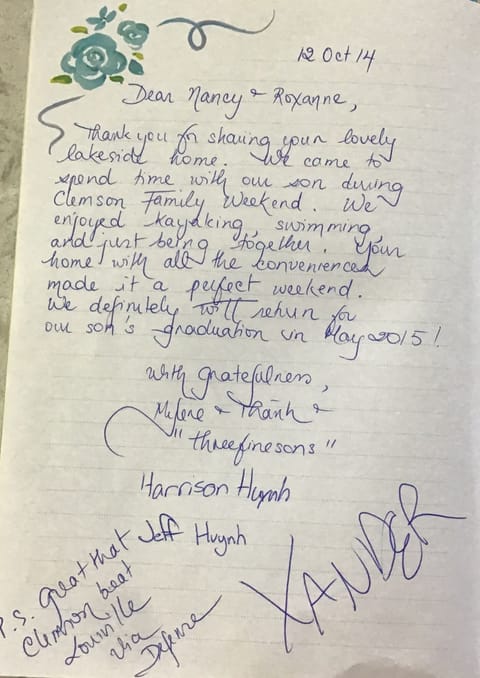 12 Oct 14
Dear Nancy & Roxanne,
Thank you for sharing your lovely
lakeside home. We came to
spend time with our son during
Clemson Family Weekend. We
enjoyed kayaking, swimming,
and just being together. Your
home with all the conveniences
made it a perfect weekend.
We definitely will return for
our son's graduation in May 2015!
With gratefulness,
& Thanh &
"threefinesons"
Harrison Huynh
Jeff Huynh
XANDER
P.S. Great that
Clemson beat
Louiville
via
Defense